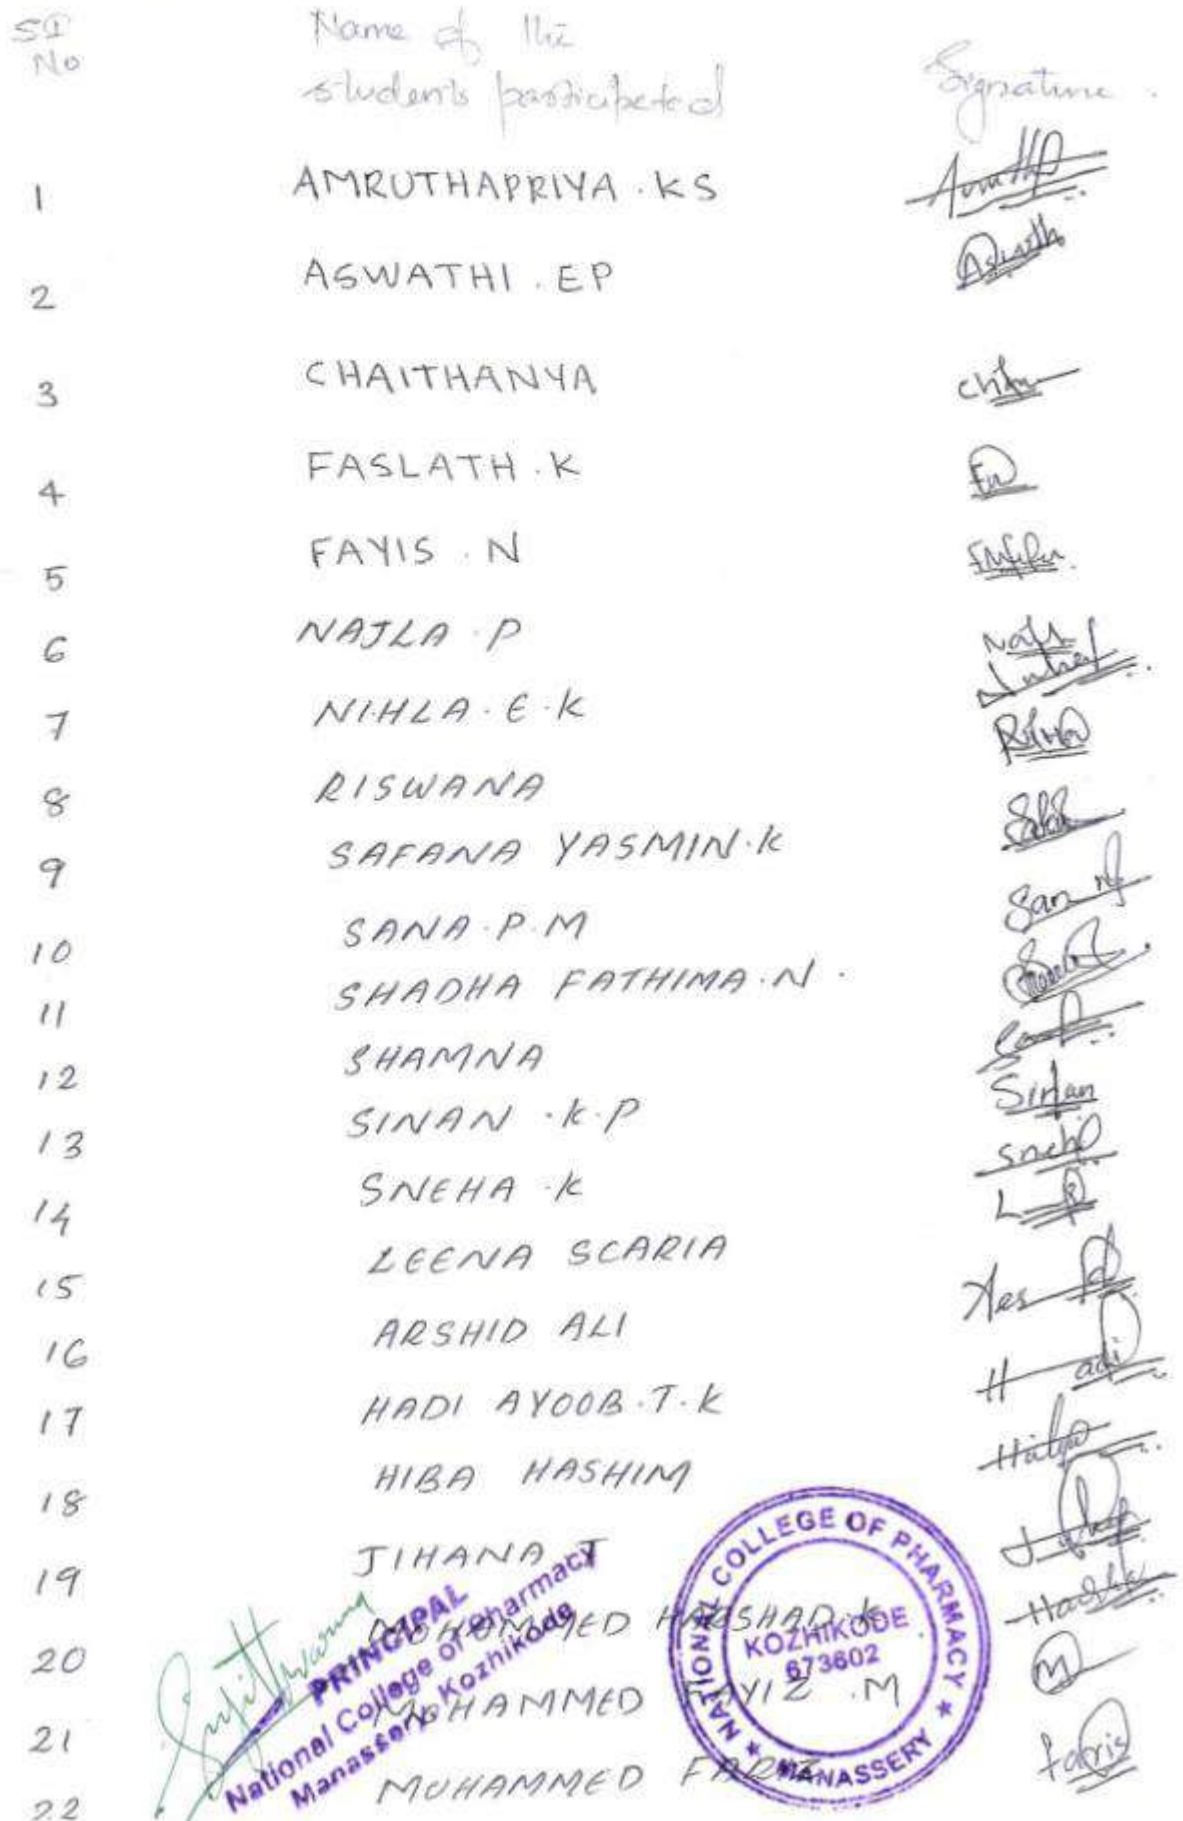 Sl No
Name of the
students participated
Signature.
1 AMRUTHAPRIYA . K S
2 ASWATHI . E P
3 CHAITHANYA
4 FASLATH . K
5 FAYIS . N
6 NAJLA . P
7 NIHLA . E . K
8 RISWANA
9 SAFANA YASMIN . K
10 SANA . P . M
11 SHADHA FATHIMA . N .
12 SHAMNA
13 SINAN . K . P
Sinan
14 SNEHA . K
Sneh
15 LEENA SCARIA
16 ARSHID ALI
17 HADI AYOOB . T . K
Hadi
18 HIBA HASHIM
19 JIHANA T
20 MOHAMMED HARSHAD . K
21 MOHAMMED FAYIZ . M
22 MUHAMMED FARIZ
faris
PRINCIPAL
National College of Pharmacy
Manassery, Kozhikode
NATIONAL COLLEGE OF PHARMACY
KOZHIKODE
673602
MANASSERY